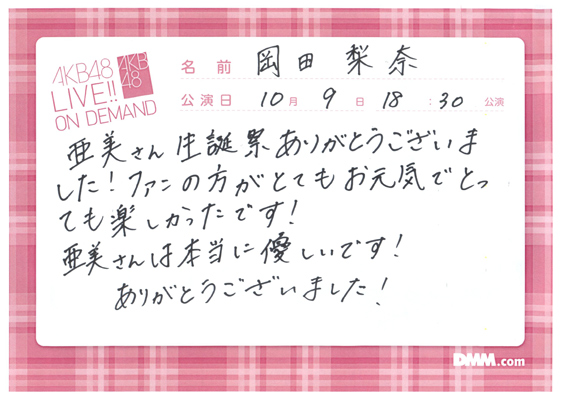 AKB48
LIVE!!
ON DEMAND
AKB
48
名前 岡田梨奈
公演日 10月9日18:30公演
亜美さん生誕祭ありがとうございま
した!ファンの方がとてもお元気でとっ
ても楽しかったです!
亜美さんは本当に優しいです!
ありがとうございました!
DMM.com